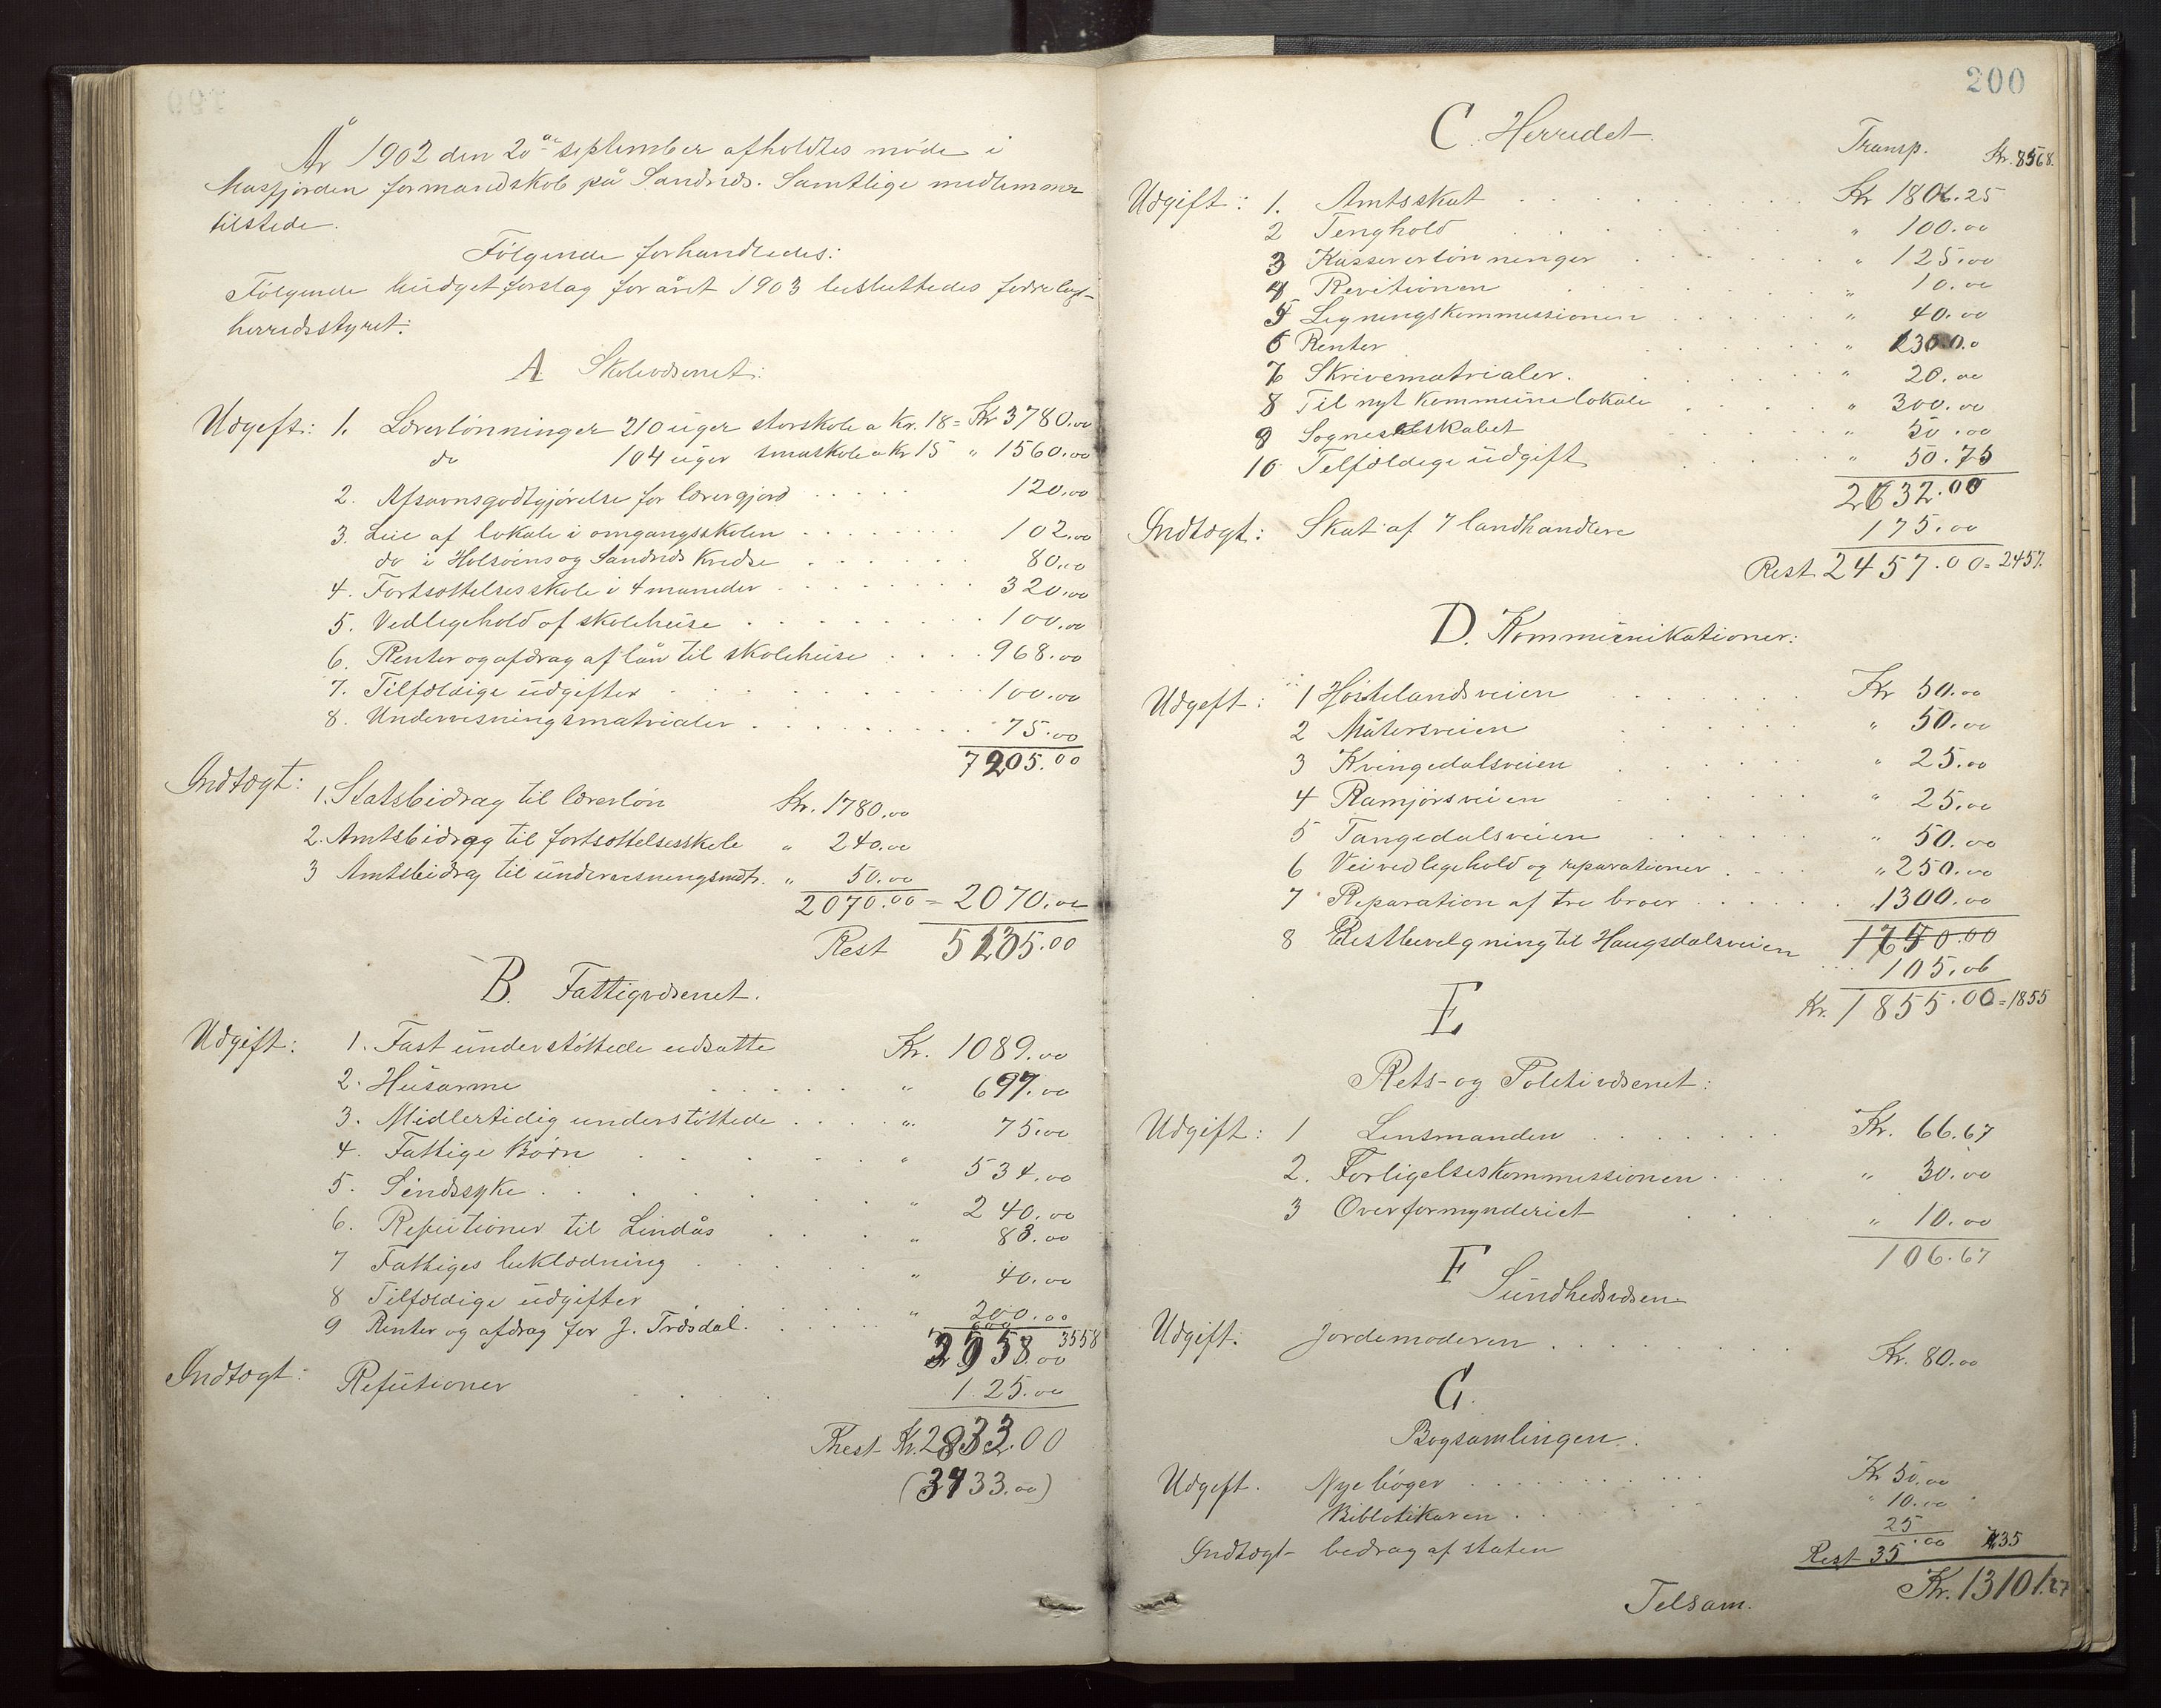 År 1902 den 20de september afholdtes møde i
Masfjorden formandskab på Sandnes. Samtlige medlemmer
tilstede.
Følgende forhandledes:
Følgende budgetforslag for året 1903 besluttedes forrelagt
herredsstyret:
A Skolevæsenet:
Udgift: 1. Lærerlønninger 210 uger storskole a Kr. 18 = Kr 3780.00
do 104 uger småskole a Kr 15 " 1560.00
2. Afsavnsgodtgjørelse for lærergjord 120.00
3. Leie af lokale i omgangsskolen 102.00
do i Holsøens og Sandnes Kredse 80.00
4. Fortsættelsesskole i 4 måneder 320.00
5. Vedligehold af skolehuse 100.00
6. Renter og afdrag af lån til skolehuse 968.00
7. Tilfældige udgifter 100.00
8. Undervisningsmatrialer 75.00
7205.00
Indtægt: 1. Statsbidrag til lærerløn Kr. 1780.00
2. Amtsbidrag til fortsættelsesskole " 240.00
3 Amtsbidrag til undervisningsmtr. " 50.00
2070.00 = 2070.00
Rest 5135.00
B. Fattigvæsenet.
Udgift: 1. Fast understøttede udsatte Kr. 1089.00
2. Husarme " 697.00
3. Midlertidig understøttede " 75.00
4. Fattige Børn " 534.00
5. Sindssyke " 240.00
6. Refutioner til Lindås " 83.00
7 Fattiges beklædning " 40.00
8 Tilfældige udgifter " 200.00
9 Renter og afdrag for J. Træsdal. 600
2958.00 3558
Indtægt: Refutioner 125.00
Rest Kr. 2833.00
(3433.00)
200
C. Herredet.
Transp. Kr. 8568.
Udgift: 1. Amtsskat Kr 1806.25
2 Tinghold " 100.00
3 Kassererlønninger " 125.00
4 Revitionen " 10.00
5 Ligningskommissionen " 40.00
6 Renter " 130.00
7 Skrivematrialer. " 20.00
8 Til nyt Kommunelokale " 300.00
9 Sogneselskabet " 50.00
10 Tilfældige udgift " 50.75
2632.00
Indtægt: Skat af 7 landhandlere 175.00
Rest 2457.00 = 2457.
D. Kommunikationer:
Udgift: 1 Høstelandsveien Kr 50.00
2 Måtersveien " 50.00
3 Kvingedalsveien " 25.00
4 Ramjørsveien " 25.00
5 Tangedalsveien " 50.00
6 Veivedligehold og reparationer " 250.00
7 Reparation af tre broer " 1300.00
1750.00
8 Restbevilgning til Haugsdalsveien 105.06
Kr. 1855.06 = 1855
E
Rets- og Politivæsenet:
Udgift: 1 Lensmanden Kr. 66.67
2. Forligelseskommissionen " 30.00
3 Overformynderiet " 10.00
106.67
F
Sundhedsvæsen
Udgift. Jordemoderen Kr. 80.00
G.
Bogsamlingen.
Udgift. Nye bøger Kr 50.00
Bibliotikaren " 10.00
Indtægt bidrag af staten 25
Rest 35.00 " 35
Tilsam. Kr. 13101.67